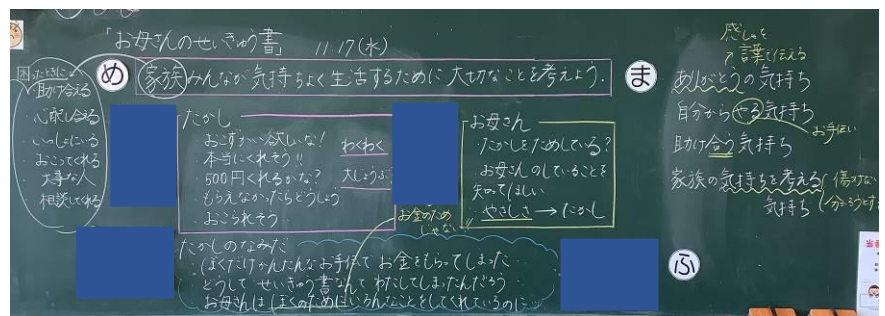 「お母さんのせいきゅう書」 11.17(水)
め
家族みんなが気持ちよく生活するために大切なことを考えよう.
困ったときに
助け合える
心配し合える
いっしょにいる
おこってくれる
大事な人
相談してくれる
たかし
おこずかい欲しいな!
本当にくれそう!!
500円くれるかな?
もらえなかったらどうしよう
おこられそう
わくわく
大じょうぶ
お母さん
たかしをためしている?
お母さんのしていることを
知ってほしい
やさしさ→たかし
お金のため
じゃない!!
たかしのなみだ
ぼくだけかんたんなお手伝いでお金をもらってしまった
どうしてせいきゅう書なんてわたしてしまったんだろう
お母さんはぼくのためにいろんなことをしてくれているのに…
ま
感しゃを
言葉で伝える
ありがとうの気持ち
自分からやる気持ち
お手伝い
助け合う気持ち
家族の気持ちを考える
気持ち
傷つけない
分かろうとする
ふ